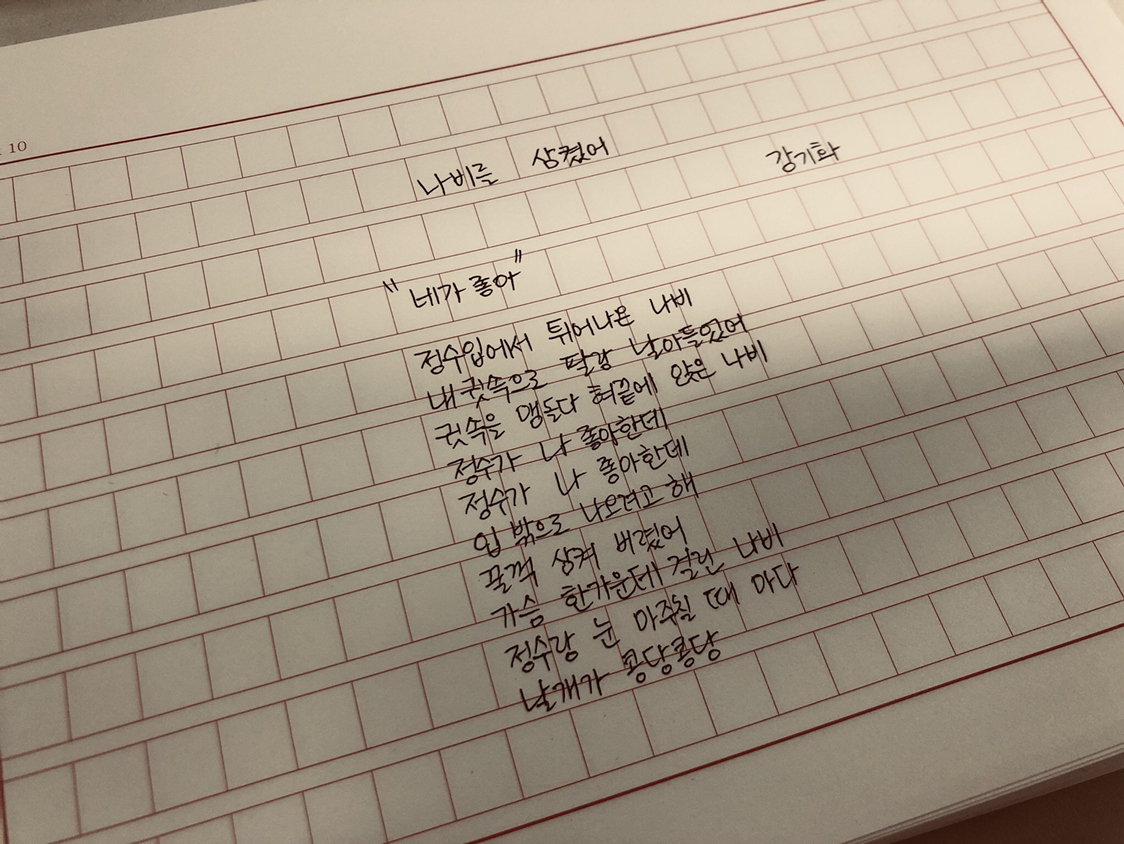 : 10
나비를 삼켰어 강기화
"네가 좋아"
정수입에서 튀어나온 나비
내 귓속으로 팔랑 날아들었어
귓속을 맴돌다 혀끝에 앉은 나비
정수가 나 좋아한데
정수가 나 좋아한데
입 밖으로 나오려고 해
꿀꺽 삼켜 버렸어
가슴 한가운데 걸린 나비
정수랑 눈 마주칠 때 마다
날개가 콩당콩당